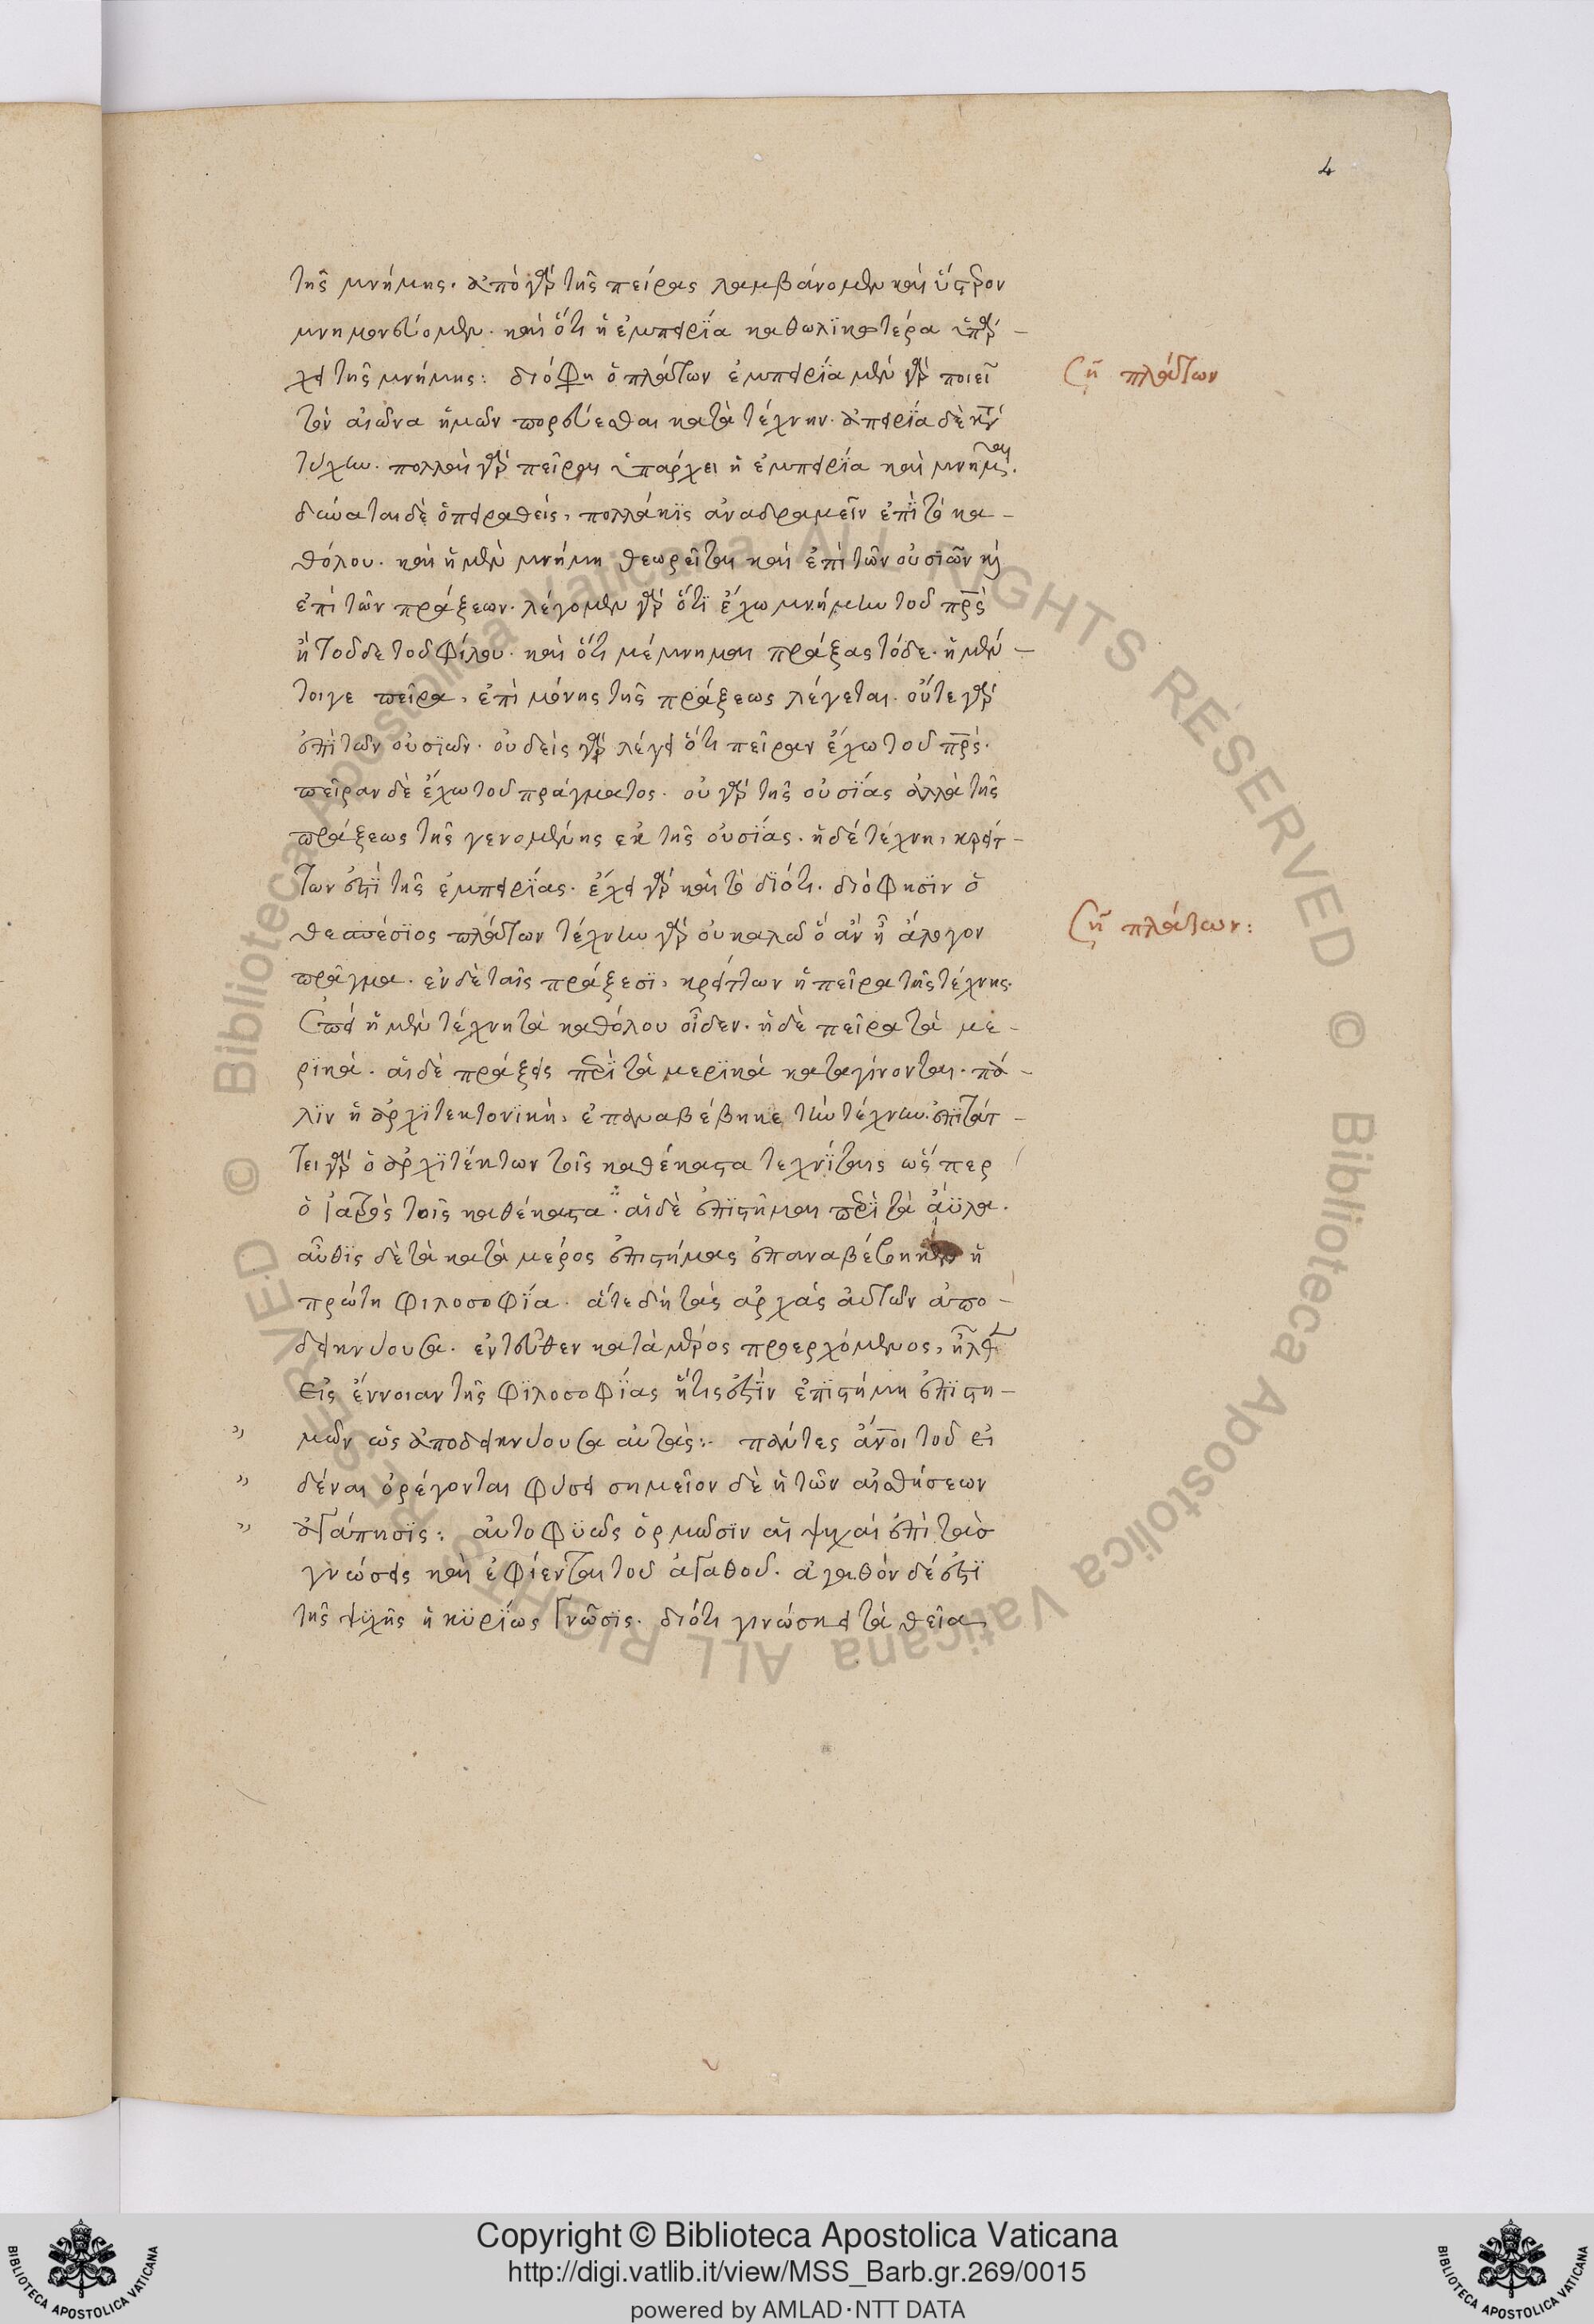 4
τῆς μνήμης. ἀπὸ γὰρ τῆς πείρας λαμβάνομεν καὶ ὕστερον
μνημονεύομεν. καὶ ὅτι ἡ ἐμπειρία καθωλικοτέρα ὑπάρ-
χει τῆς μνήμης: διό φη ὁ πλάτων ἐμπειρία μὲν γὰρ ποιεῖ
τὸν αἰῶνα ἡμῶν πορεύεσθαι κατὰ τέχνην. ἀπειρία δὲ κατὰ
τύχην. πολλαὶ γὰρ πεῖραι ὑπάρχει ἡ ἐμπειρία καὶ μνῆμαι.
δύναται δὲ ὁ πειραθείς, πολλάκις ἀναδραμεῖν ἐπὶ τὸ κα-
θόλου. καὶ ἡ μὲν μνήμη θεωρεῖται καὶ ἐπὶ τῶν οὐσιῶν καὶ
ἐπὶ τῶν πράξεων. λέγομεν γὰρ ὅτι ἔχω μνήμην τοῦ πρς
ἢ τοῦδε τοῦ φίλου. καὶ ὅτι μέμνημαι πράξας τόδε. ἡ μέν-
τοιγε πεῖρα, ἐπὶ μόνης τῆς πράξεως λέγεται. οὔτε γὰρ
ἐπὶ τῶν οὐσιῶν. οὐδεὶς γὰρ λέγει ὅτι πεῖραν ἔχω τοῦ πρς.
πεῖραν δὲ ἔχω τοῦ πράγματος. οὐ γὰρ τῆς οὐσίας ἀλλὰ τῆς
πράξεως τῆς γενομένης ἐκ τῆς οὐσίας. ἡ δὲ τέχνη, κρείτ-
των ἐστὶ τῆς ἐμπειρίας. ἔχει γὰρ καὶ τὸ διότι. διό φησιν ὁ
θεσπέσιος πλάτων τέχνην γὰρ οὐ καλῶ ὃ ἂν ᾖ ἄλογον
πρᾶγμα. ἐν δὲ ταῖς πράξεσι, κρείττων ἡ πεῖρα τῆς τέχνης.
ἐπεὶ ἡ μὲν τέχνη τὰ καθόλου οἶδεν. ἡ δὲ πεῖρα τὰ με-
ρικά. αἱ δὲ πράξεις περὶ τὰ μερικὰ καταγίνονται. πά-
λιν ἡ ἀρχιτεκτονικὴ, ἐπαναβέβηκε τὴν τέχνην. ἐπιτάτ-
τει γὰρ ὁ ἀρχιτέκτων τοῖς καθέκαστα τεχνίταις ὥσπερ
ὁ ἰατρὸς τοῖς καθέκαστα. αἱ δὲ ἐπιστῆμαι περὶ τὰ ἄϋλα.
αὖθις δὲ τὰ κατὰ μέρος ἐπιστήμας ἐπαναβέβηκεν ἡ
πρώτη φιλοσοφία. ἅτε δὴ τὰς ἀρχὰς αὐτῶν ἀπο-
δεικνύουσα. ἐντεῦθεν κατὰ μέρος προερχόμενος, ἦλθεν
εἰς ἔννοιαν τῆς φιλοσοφίας ἥτις ἐστὶν ἐπιστήμη ἐπιστη-
μῶν ὡς ἀποδεικνύουσα αὐτάς:- πάντες ἄνοι τοῦ εἰ
δέναι ὀρέγονται φύσει σημεῖον δὲ ἡ τῶν αἰσθήσεων
ἀγάπησις: αὐτοφυῶς ὁρμῶσιν αἱ ψυχαὶ ἐπὶ τὰσ
γνώσεις καὶ ἐφίενται τοῦ ἀγαθοῦ. ἀγαθὸν δέ ἐστι
τῆς ψυχῆς ἡ κυρίως γνῶσις. διότι γινώσκει τὰ θεῖα,
ση πλάτων
ση πλάτων:
Copyright © Biblioteca Apostolica Vaticana
http://digi.vatlib.it/view/MSS_Barb.gr.269/0015
powered by AMLAD·NTT DATA
BIBLIOTECA APOSTOLICA VATICANA
BIBLIOTECA APOSTOLICA VATICANA
© Biblioteca Apostolica Vaticana ALL RIGHTS RESERVED © Biblioteca Apostolica Vaticana ALL RIGHTS RESERVED